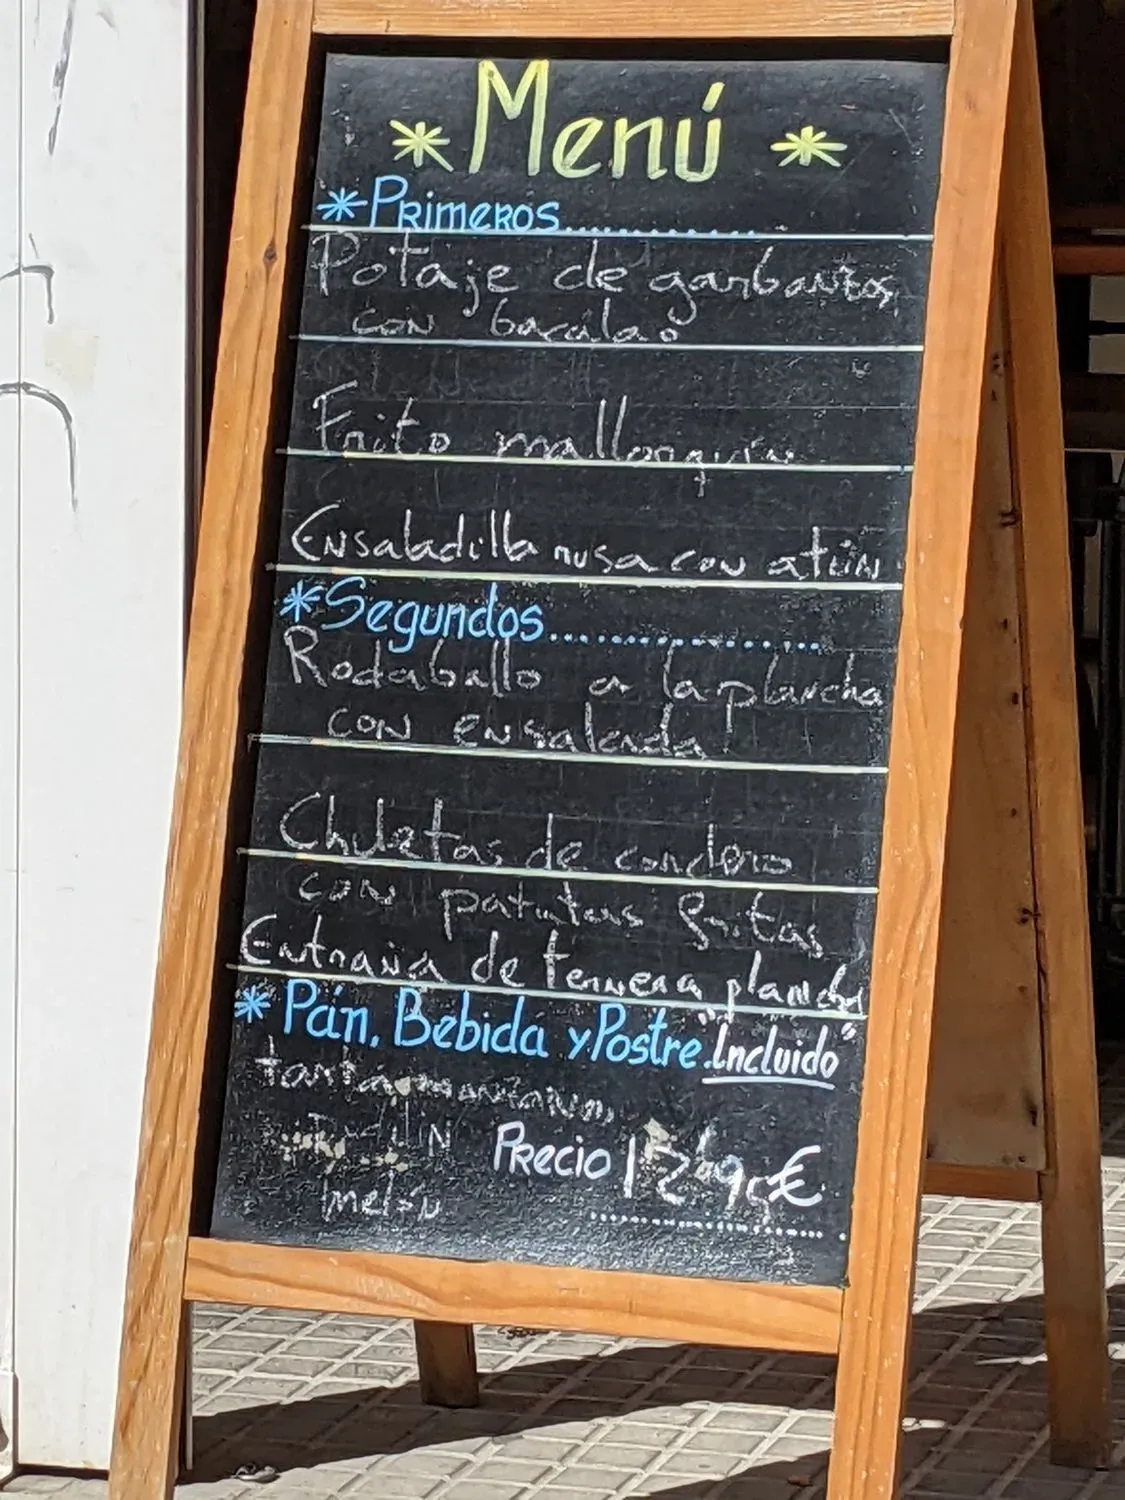 * Menú *
* Primeros.............
Potaje de garbanzos
con bacalao
Frito mallorquín
Ensaladilla rusa con atún
* Segundos...................
Rodaballo a la plancha
con ensalada
Chuletas de cordero
con patatas fritas
Entraña de ternera plancha
* Pán, Bebida y Postre. "Incluido"
tarta manzana,
Pudin
melón
Precio €